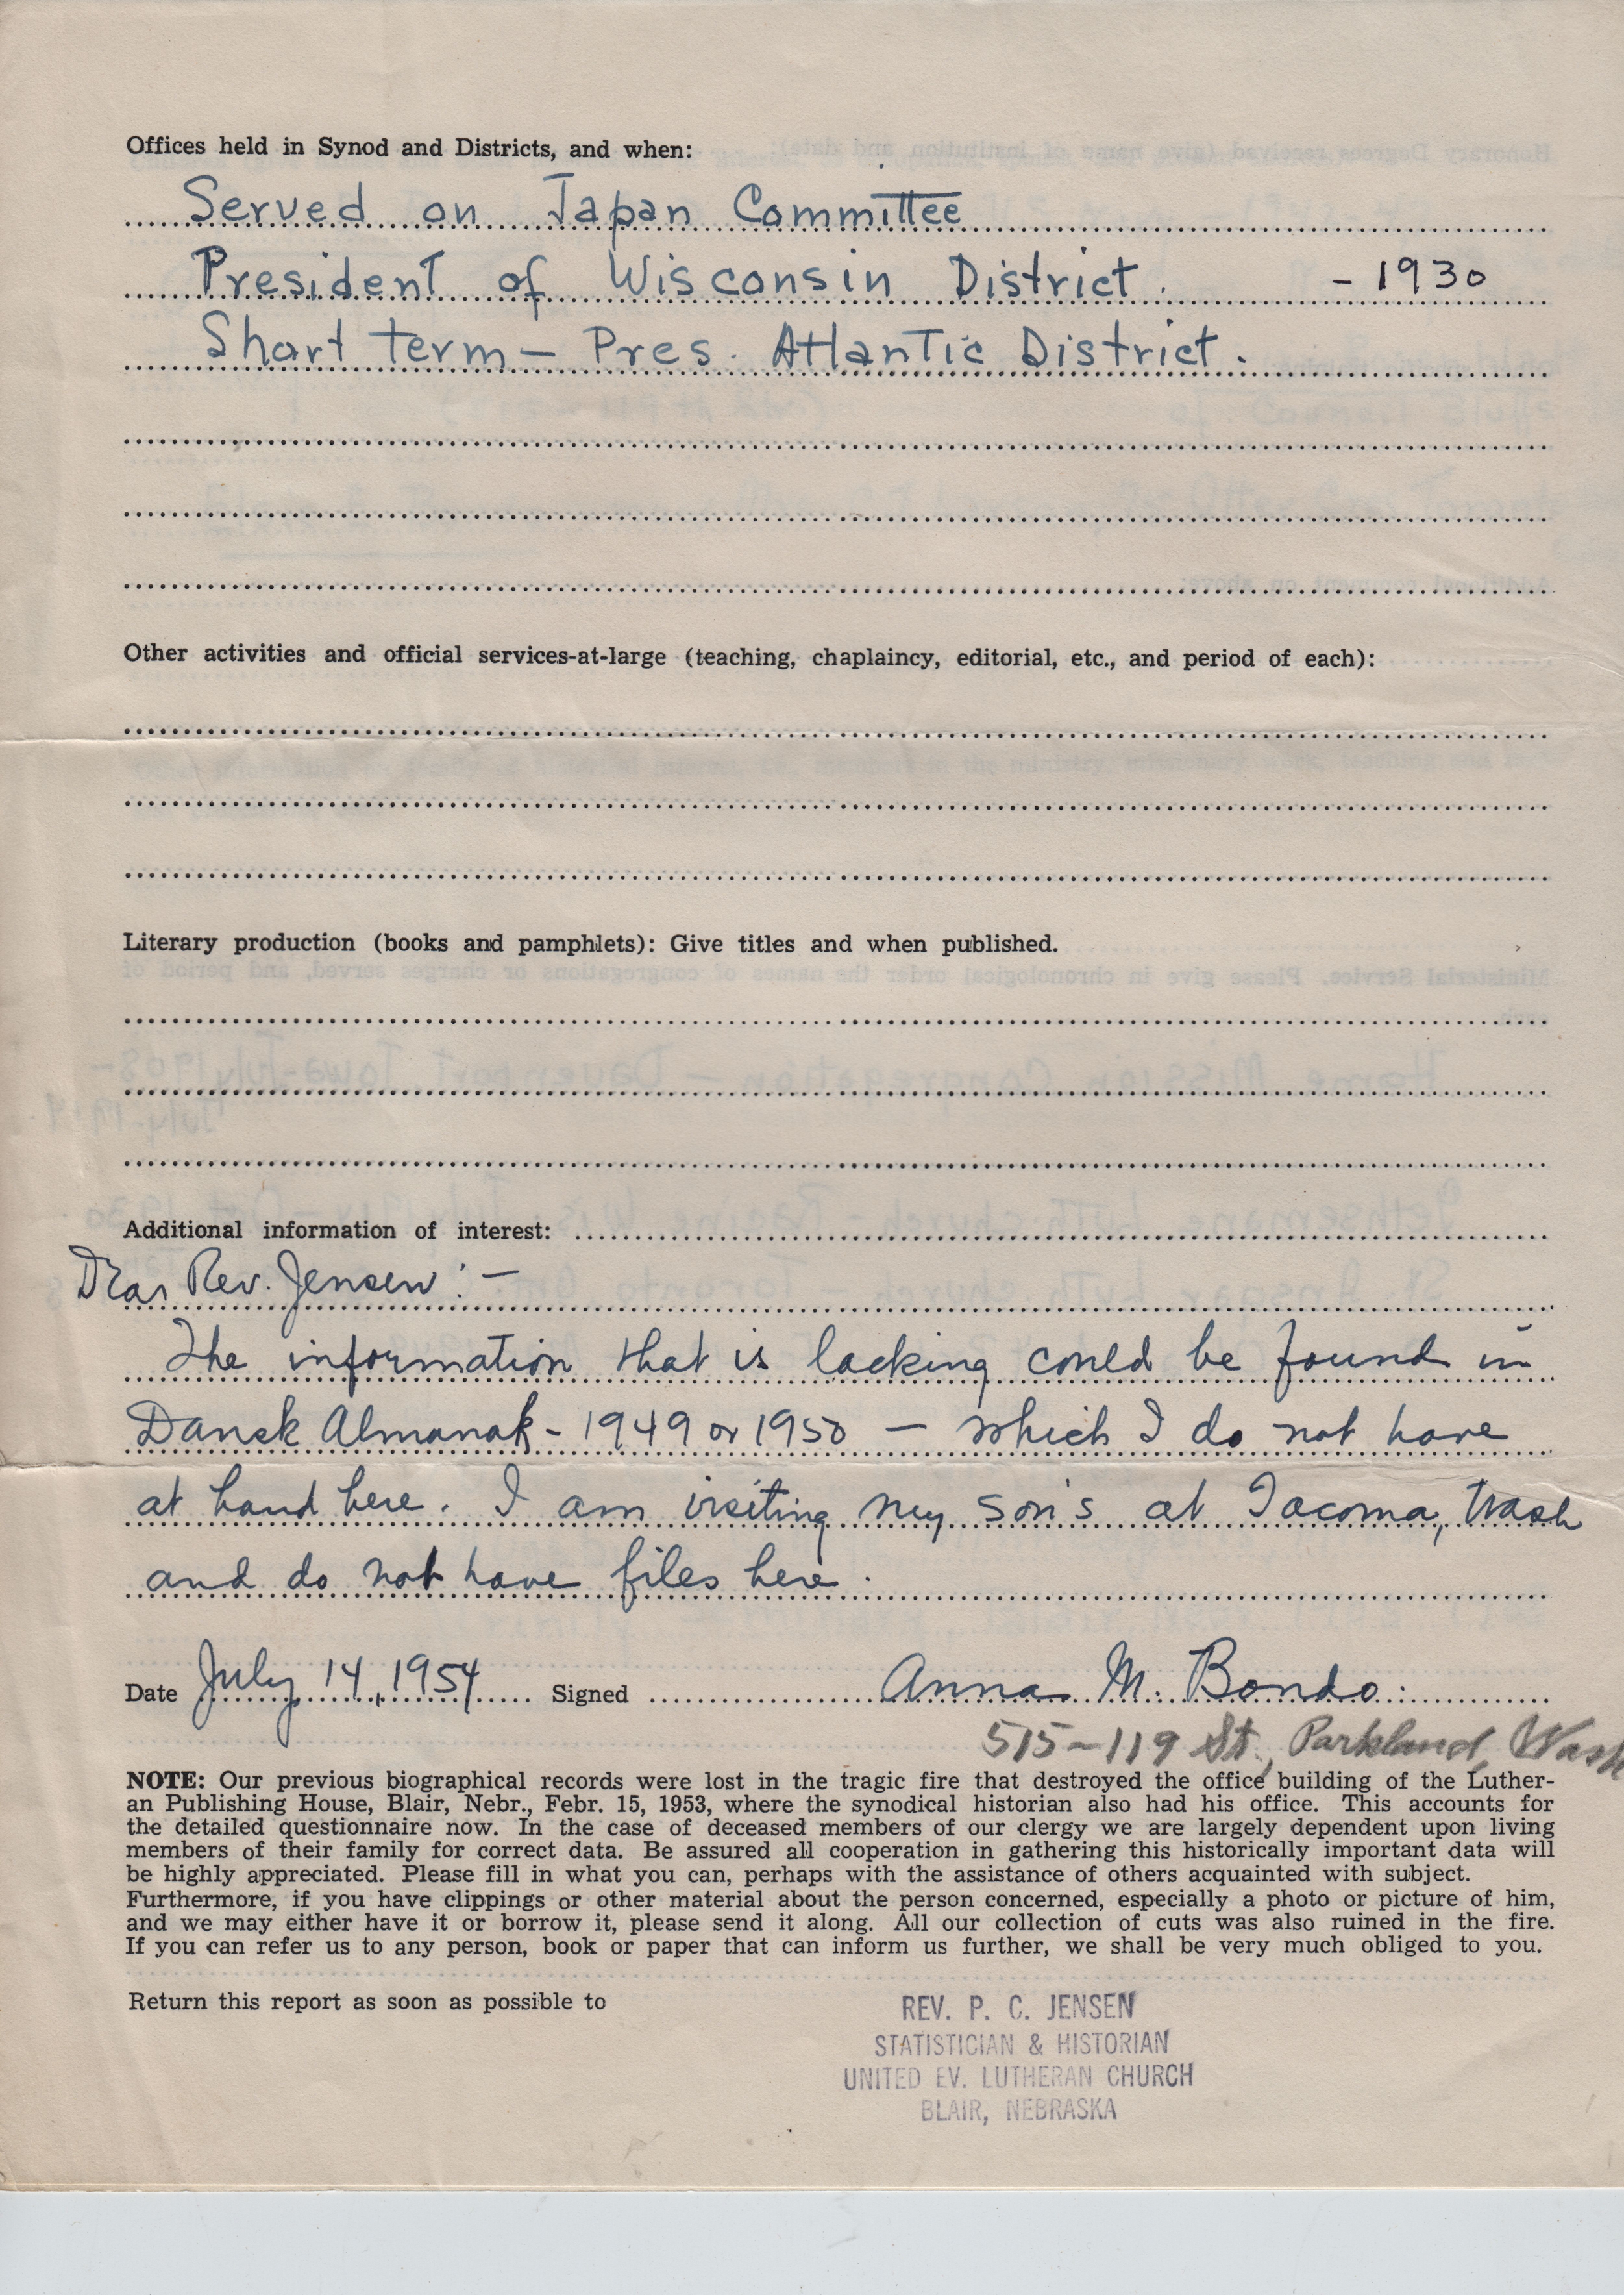 Offices held in Synod and Districts, and when:
Served on Japan Committee
President of Wisconsin District. - 1930
Short term - Pres. Atlantic District.
Other activities and official services-at-large (teaching, chaplaincy, editorial, etc., and period of each):
Literary production (books and pamphlets): Give titles and when published.
Additional information of interest:
Dear Rev. Jensen: -
The information that is lacking could be found in
Dansk Almanak - 1949 or 1950 - which I do not have
at hand here. I am visiting my son's at Tacoma, Wash
and do not have files here.
Date July 14, 1954 Signed Anna M. Bondo.
515-119 St., Parkland, Wash
NOTE: Our previous biographical records were lost in the tragic fire that destroyed the office building of the Luther-
an Publishing House, Blair, Nebr., Febr. 15, 1953, where the synodical historian also had his office. This accounts for
the detailed questionnaire now. In the case of deceased members of our clergy we are largely dependent upon living
members of their family for correct data. Be assured all cooperation in gathering this historically important data will
be highly appreciated. Please fill in what you can, perhaps with the assistance of others acquainted with subject.
Furthermore, if you have clippings or other material about the person concerned, especially a photo or picture of him,
and we may either have it or borrow it, please send it along. All our collection of cuts was also ruined in the fire.
If you can refer us to any person, book or paper that can inform us further, we shall be very much obliged to you.
Return this report as soon as possible to
REV. P. C. JENSEN
STATISTICIAN & HISTORIAN
UNITED EV. LUTHERAN CHURCH
BLAIR, NEBRASKA